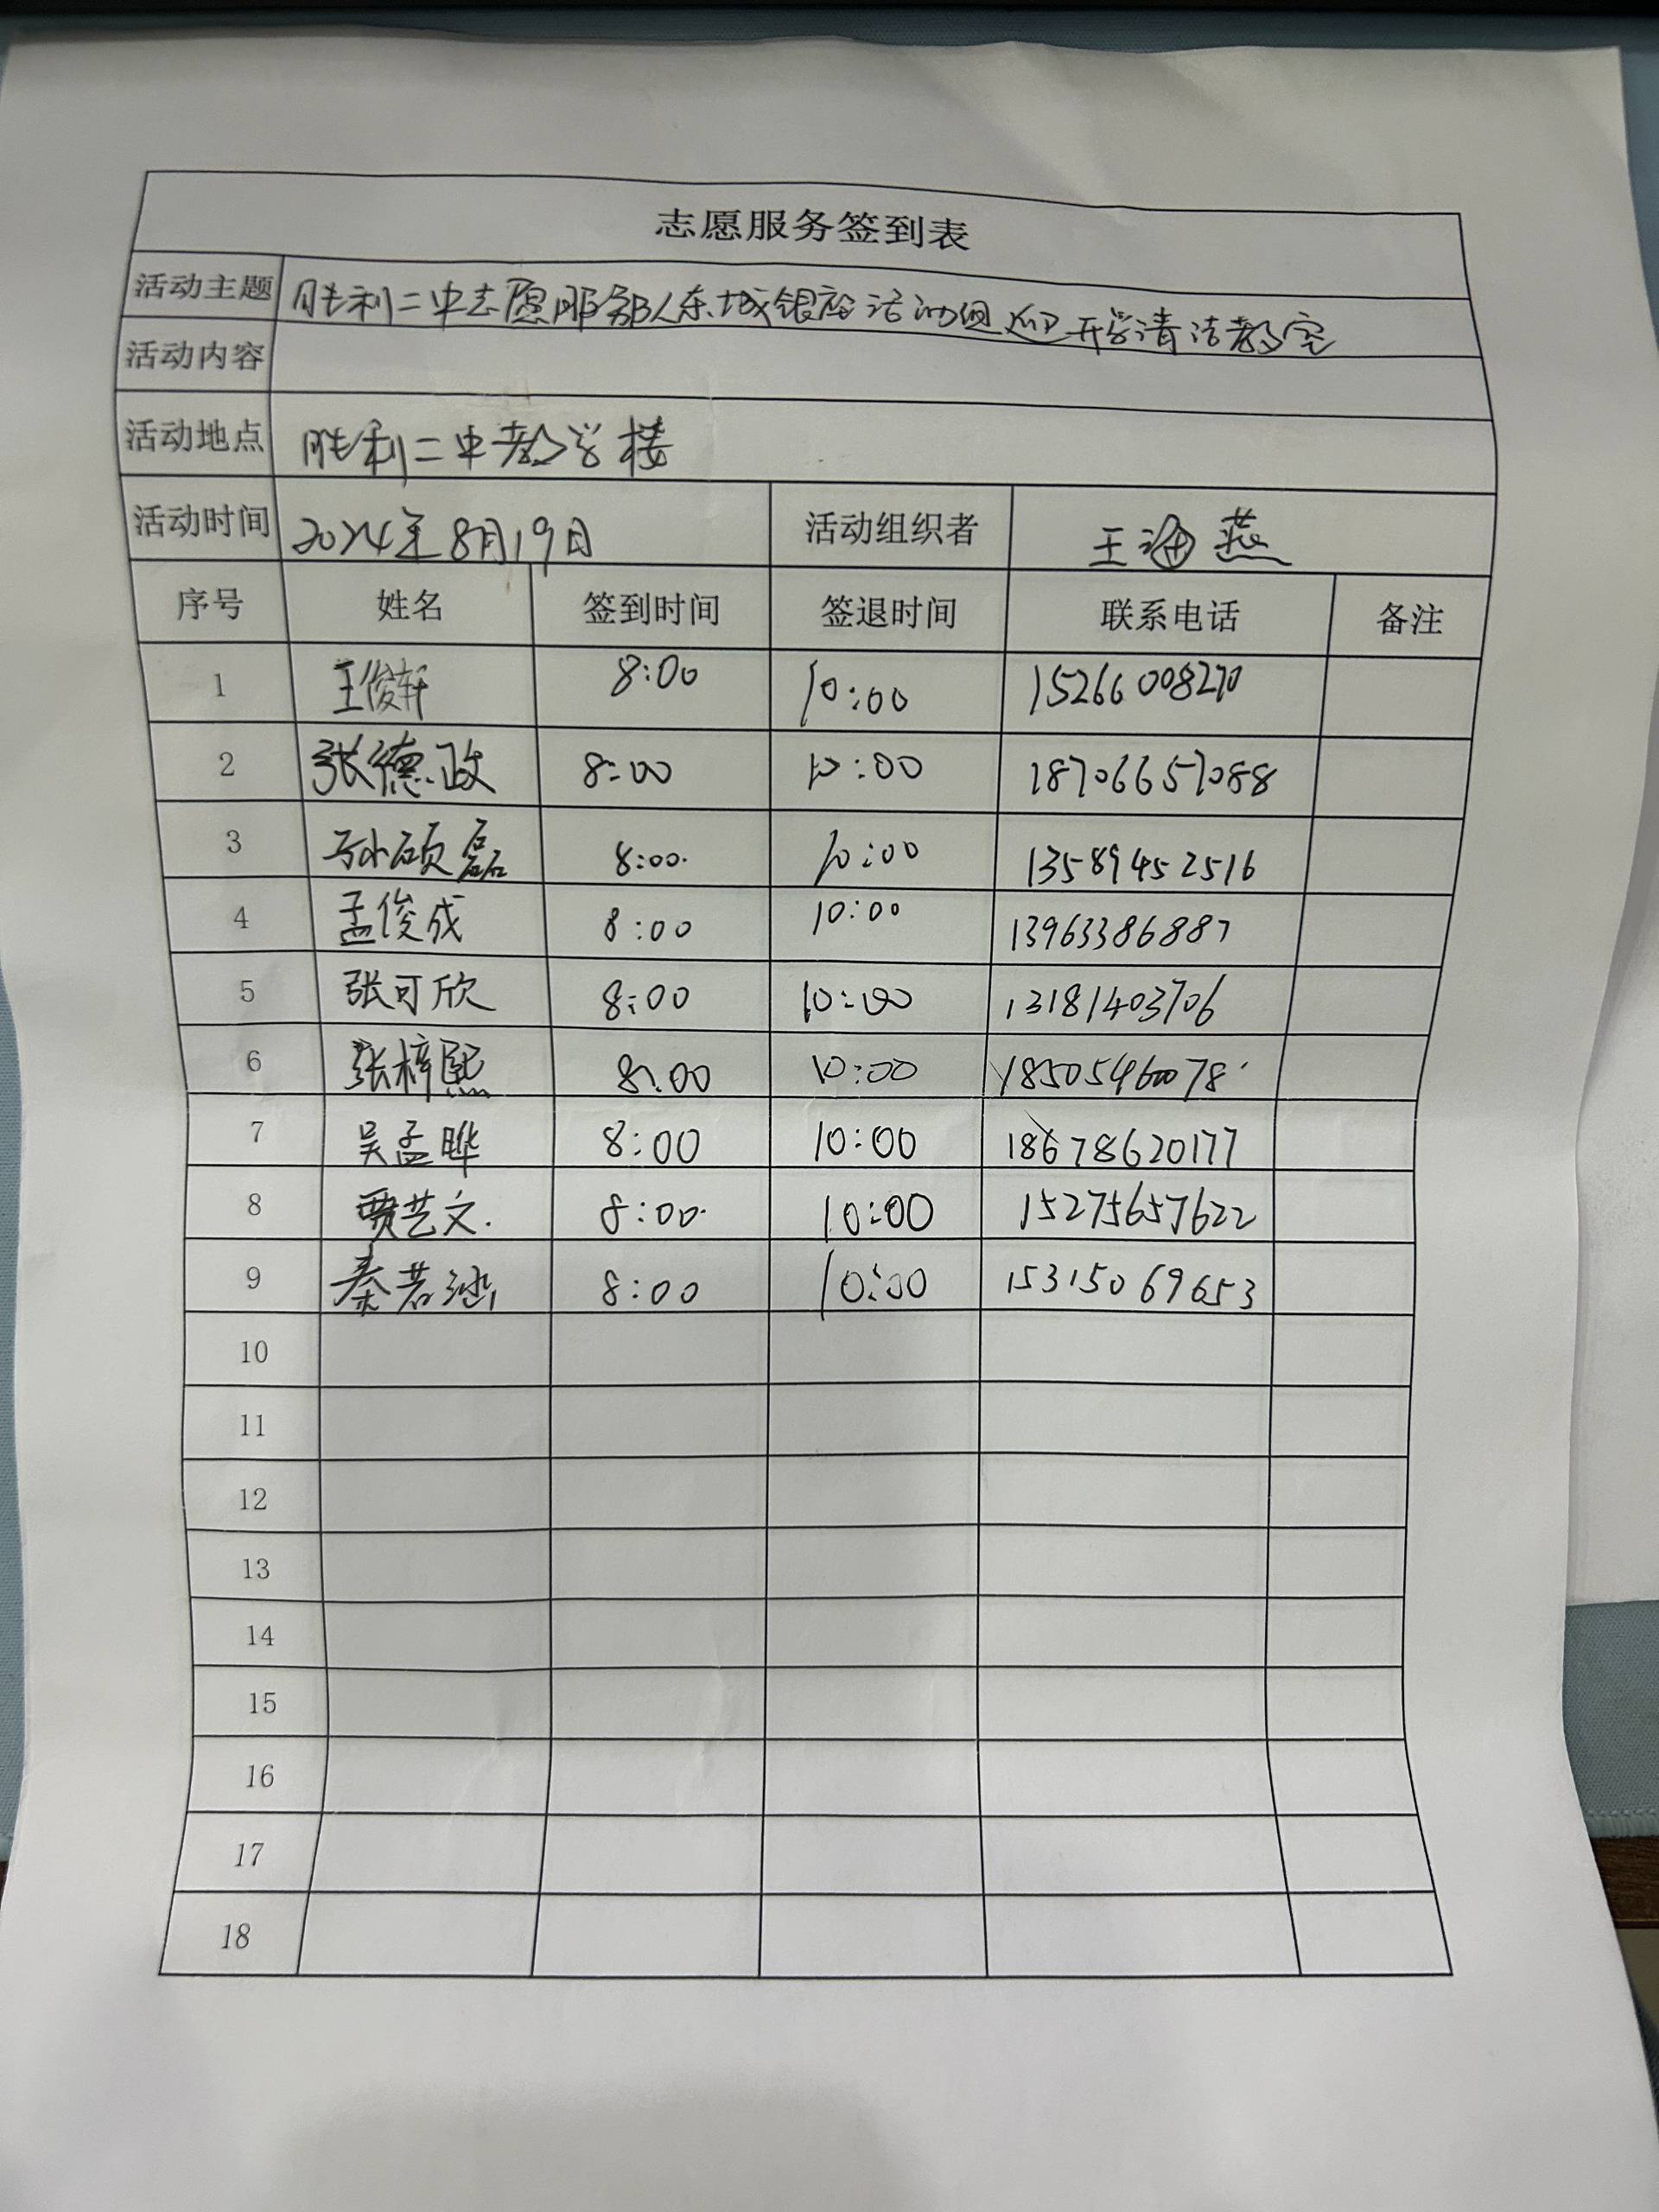 志愿服务签到表
活动主题 胜利二中志愿服务队东城银座活动组迎开学清洁教室
活动内容
活动地点 胜利二中教学楼
活动时间 2024年8月19日 活动组织者 王海燕
序号 姓名 签到时间 签退时间 联系电话 备注
1 王俊轩 8:00 10:00 15266008270
2 张德政 8:00 10:00 18706657088
3 孙硕磊 8:00 10:00 13589452516
4 孟俊成 8:00 10:00 13963386887
5 张可欣 8:00 10:00 13181403706
6 张梓熙 8:00 10:00 18505460078
7 吴孟晔 8:00 10:00 18678620177
8 贾艺文 8:00 10:00 15275657622
9 秦若涵 8:00 10:00 15315069653
10
11
12
13
14
15
16
17
18